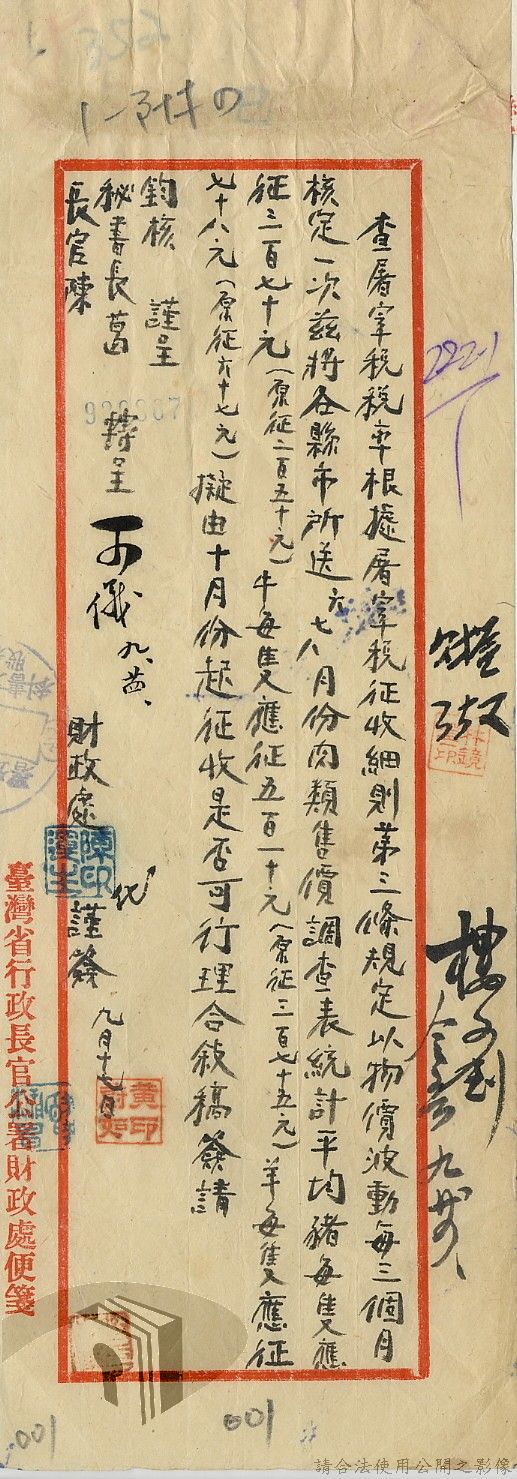 352
1-附4
查屠宰稅稅率根據屠宰稅征收細則第三條規定以物價波動每三個月
核定一次茲將各縣市所送六七八月份肉類售價調查表統計平均豬每隻應
征三百七十元(原征二百五十元)牛每隻應征五百一十元(原征三百七十五元)羊每隻應征
七十八元(原征六十七元)擬由十月份起征收是否可行理合敘稿簽請
鈞核 謹呈
秘書長葛 轉呈
長官陳
財政處 謹簽 九月十七日
陳印
黃印
930387
222-1
臺灣省行政長官公署財政處便箋
001
001
請合法使用公開之影像